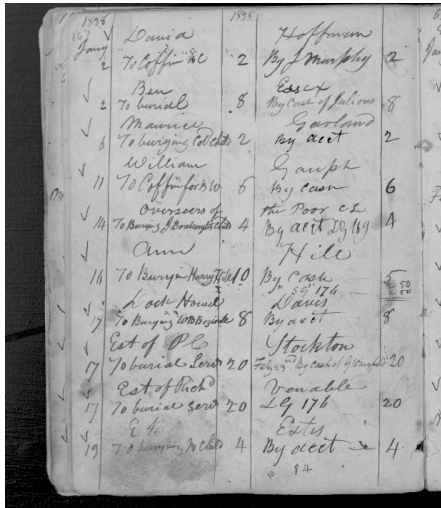 1838 1838
David Hoffman
Jany 2 To Coffin &C 2 By J Murphy 2
Ben Essex
2 To burial 8 By Cash of Julious 8
Maurice Garland
6 To burying Cold Child 2 By acct 2
William Gauph
11 To Coffin for B W. 6 By Cash 6
Overseers of the Poor
14 To Burying J Child 4 By acct LG 169 4
Ann Hill
16 To Buryin Harry 10 By Cash 5
LG 176
Lock Hous Davis
17 To Burying WB 8 By acct 8
Est of P C Stockton
17 To burial Serv 20 Feby 23rd By Cash of 20
Est of Richd Venable
17 To burial Serv 20 LG 176 20
Estes
19 To burying Child 4 By acct 4
84